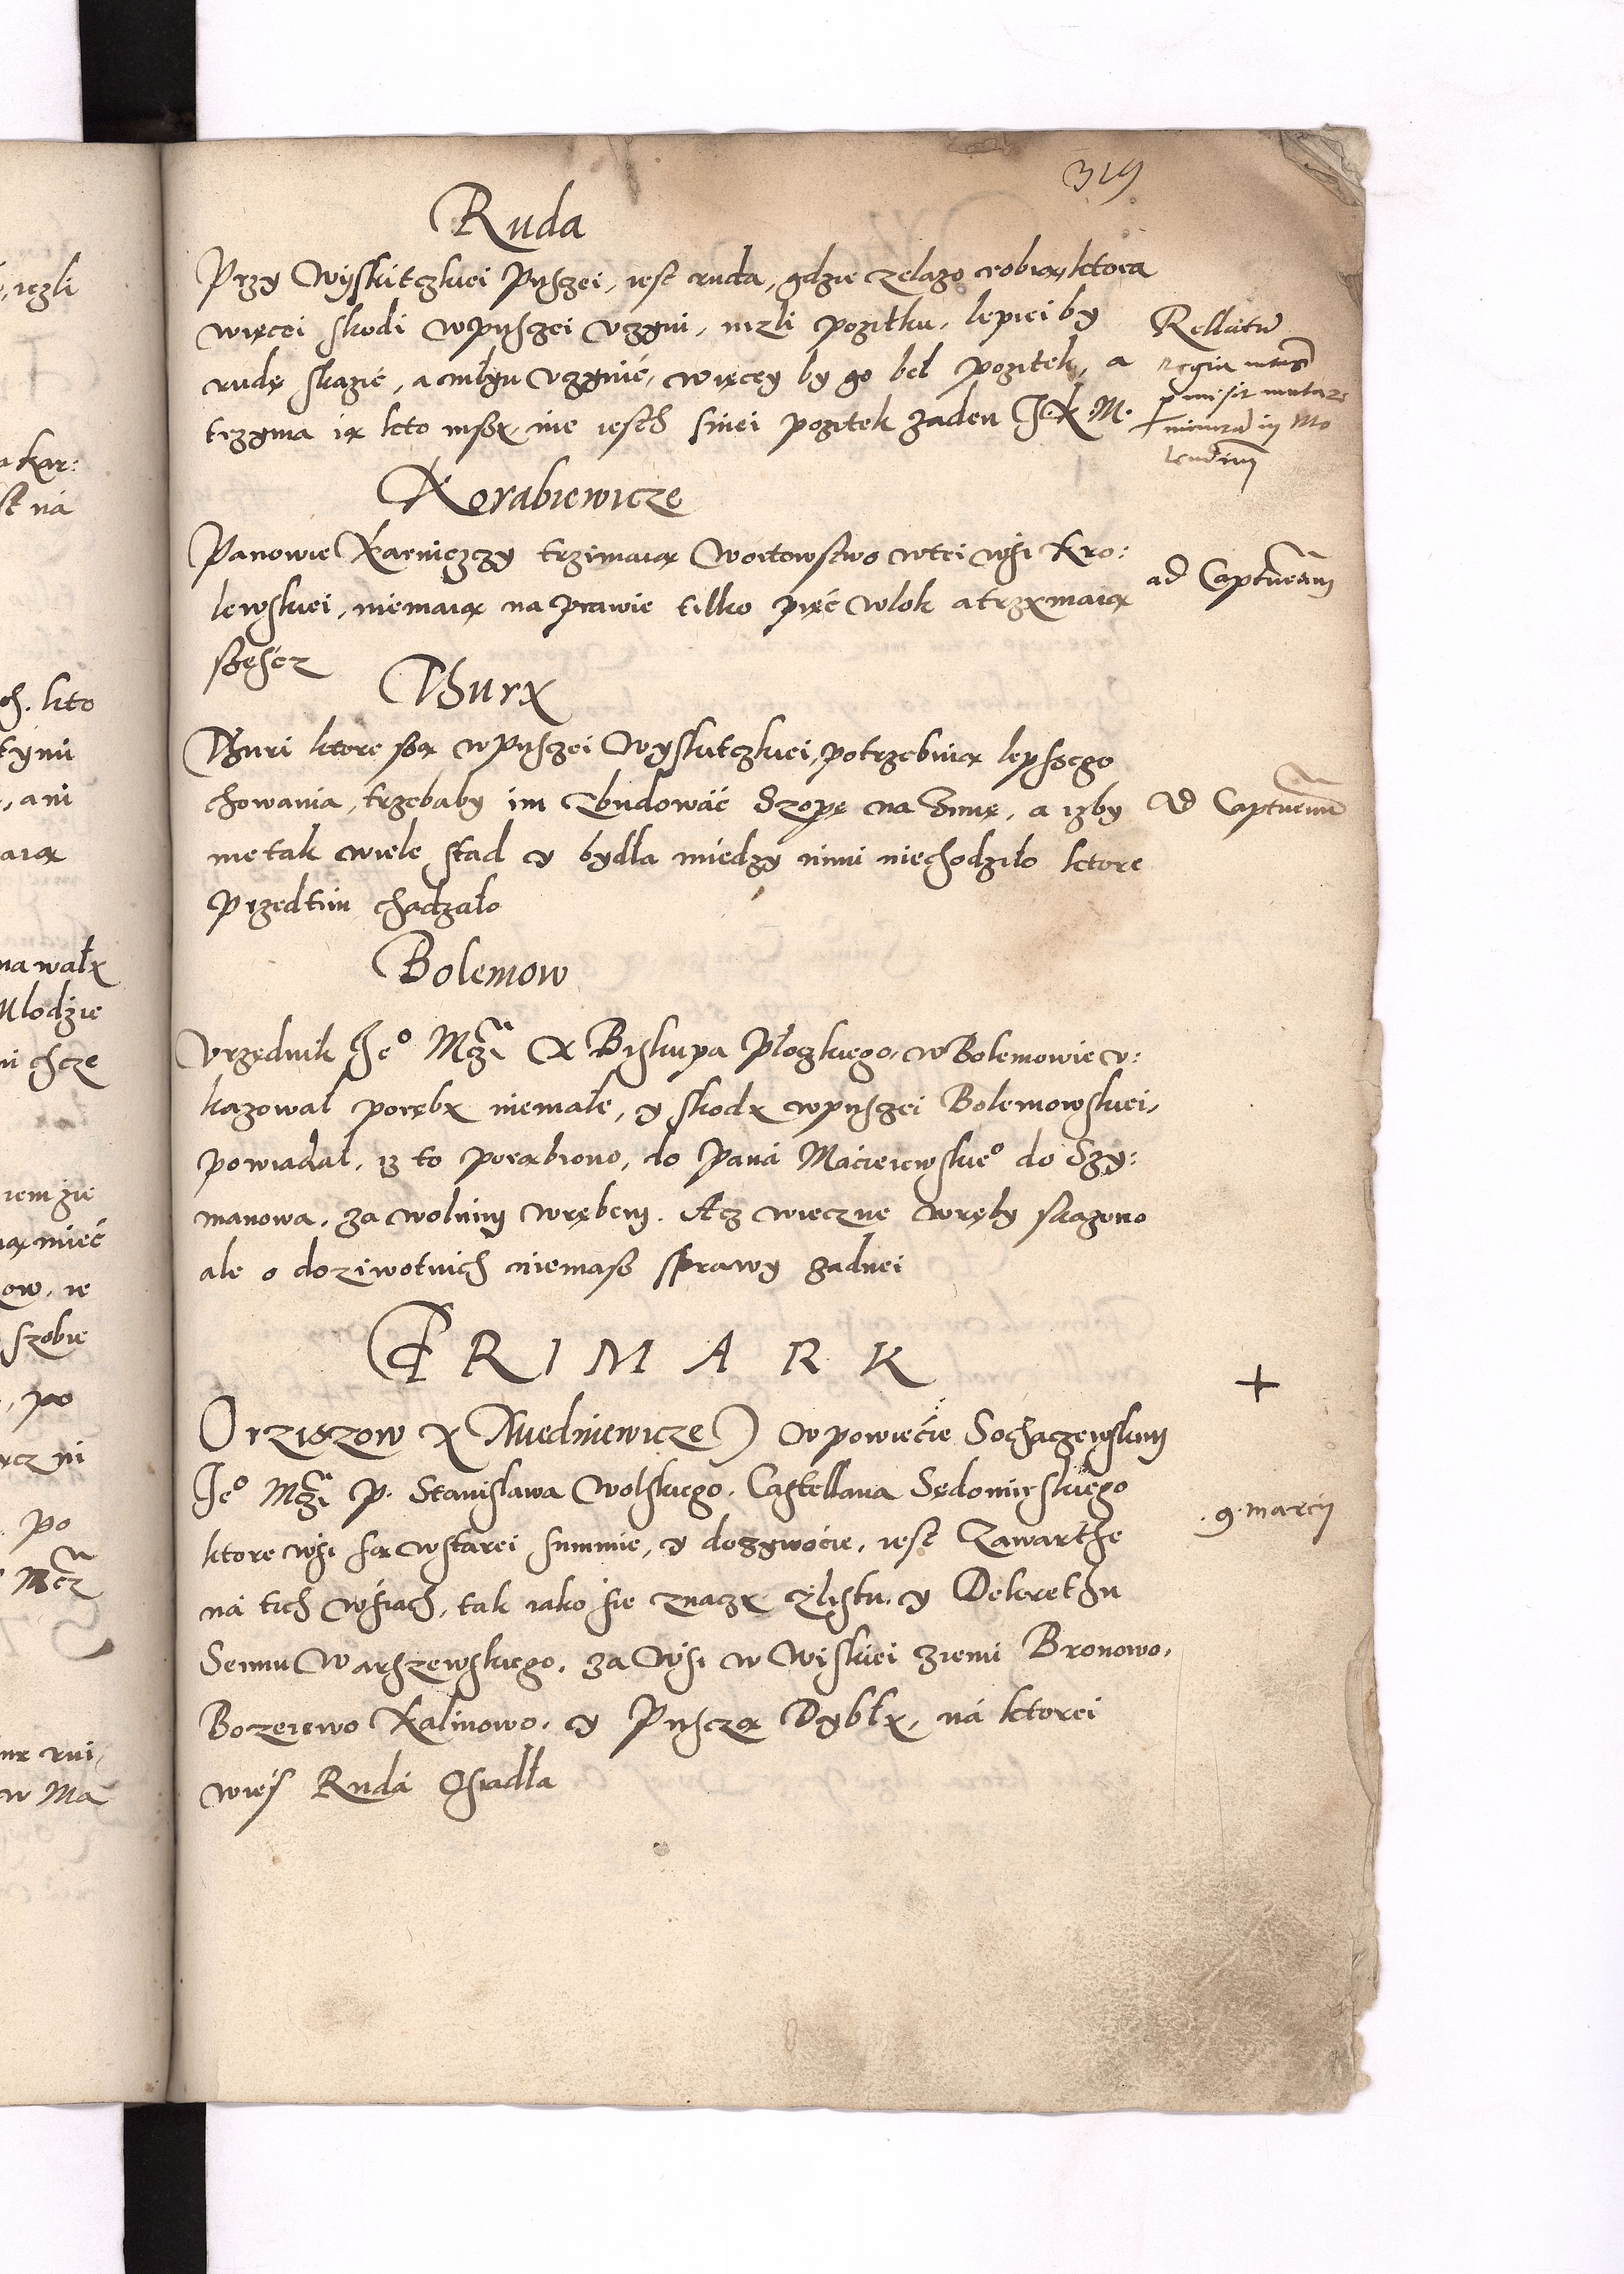 319
Ruda
Przy Wyskitczkiei Pusczei, iest ruda, gdzie zelazo robią, ktora
więcei skodi w pusczei vczyni, nizli pozitku, lepiei by
rudę skazić, a młyn vczynić, więcey by go beł pozitek, a
trzyma ią kto inszy, nie iesth s niei pozitek zaden J. K. M.
Rellatum
Regia
permisit mutare
in Mo
lendinum
Korabiewicze
Panowie Karniczczy trzimaią Woitowstwo w tei wsi Kro:
lewskiei, niemaią na prawie tilko pięć wlok a trzymaią
szesćz
ad Capturam
Thury
Thuri ktore są w pusczei Wyskitczkiei, potrzebuią lepszego
chowania, trzebaby im zbudowáć Szopę na zimę, a izby
nie tak wiele stad y bydła miedzy nimi niechodziło ktore
przedtim chadzało
Ad Capturam
Bolemow
Vrzędnik Je° Mczi X Biskupa Płoczkiego, w Bolemowie v:
kazował poręby niemałe, y skody w pusczei Bolemowskiei,
powiadał, iz to porąbiono, do Paná Macieiewskie° do Szy:
manowa, za wolnim wrębem. Acz wieczne wręby skazono
ale o doziwotnich niemasz sprawy zadnei
FRIMARK
Orziszow y Miedniewicze w powiecie Sochaczewskim
Je° Mczi P. Stanisława Wolskiego, Castellana Sędomirskiego
ktore wsi są w starei summie, y dozywocie, iest zawarthe
ná tich wsiach, tak iako sie znaczy z listu, y Dekrethu
Seimu Warszewskiego, za wsi w Wiskiei ziemi Bronowo,
Bozeiewo Kalinowo, y Pusczą Dybły, ná ktorei
wies Rudá Osiadła
+
9. marcij